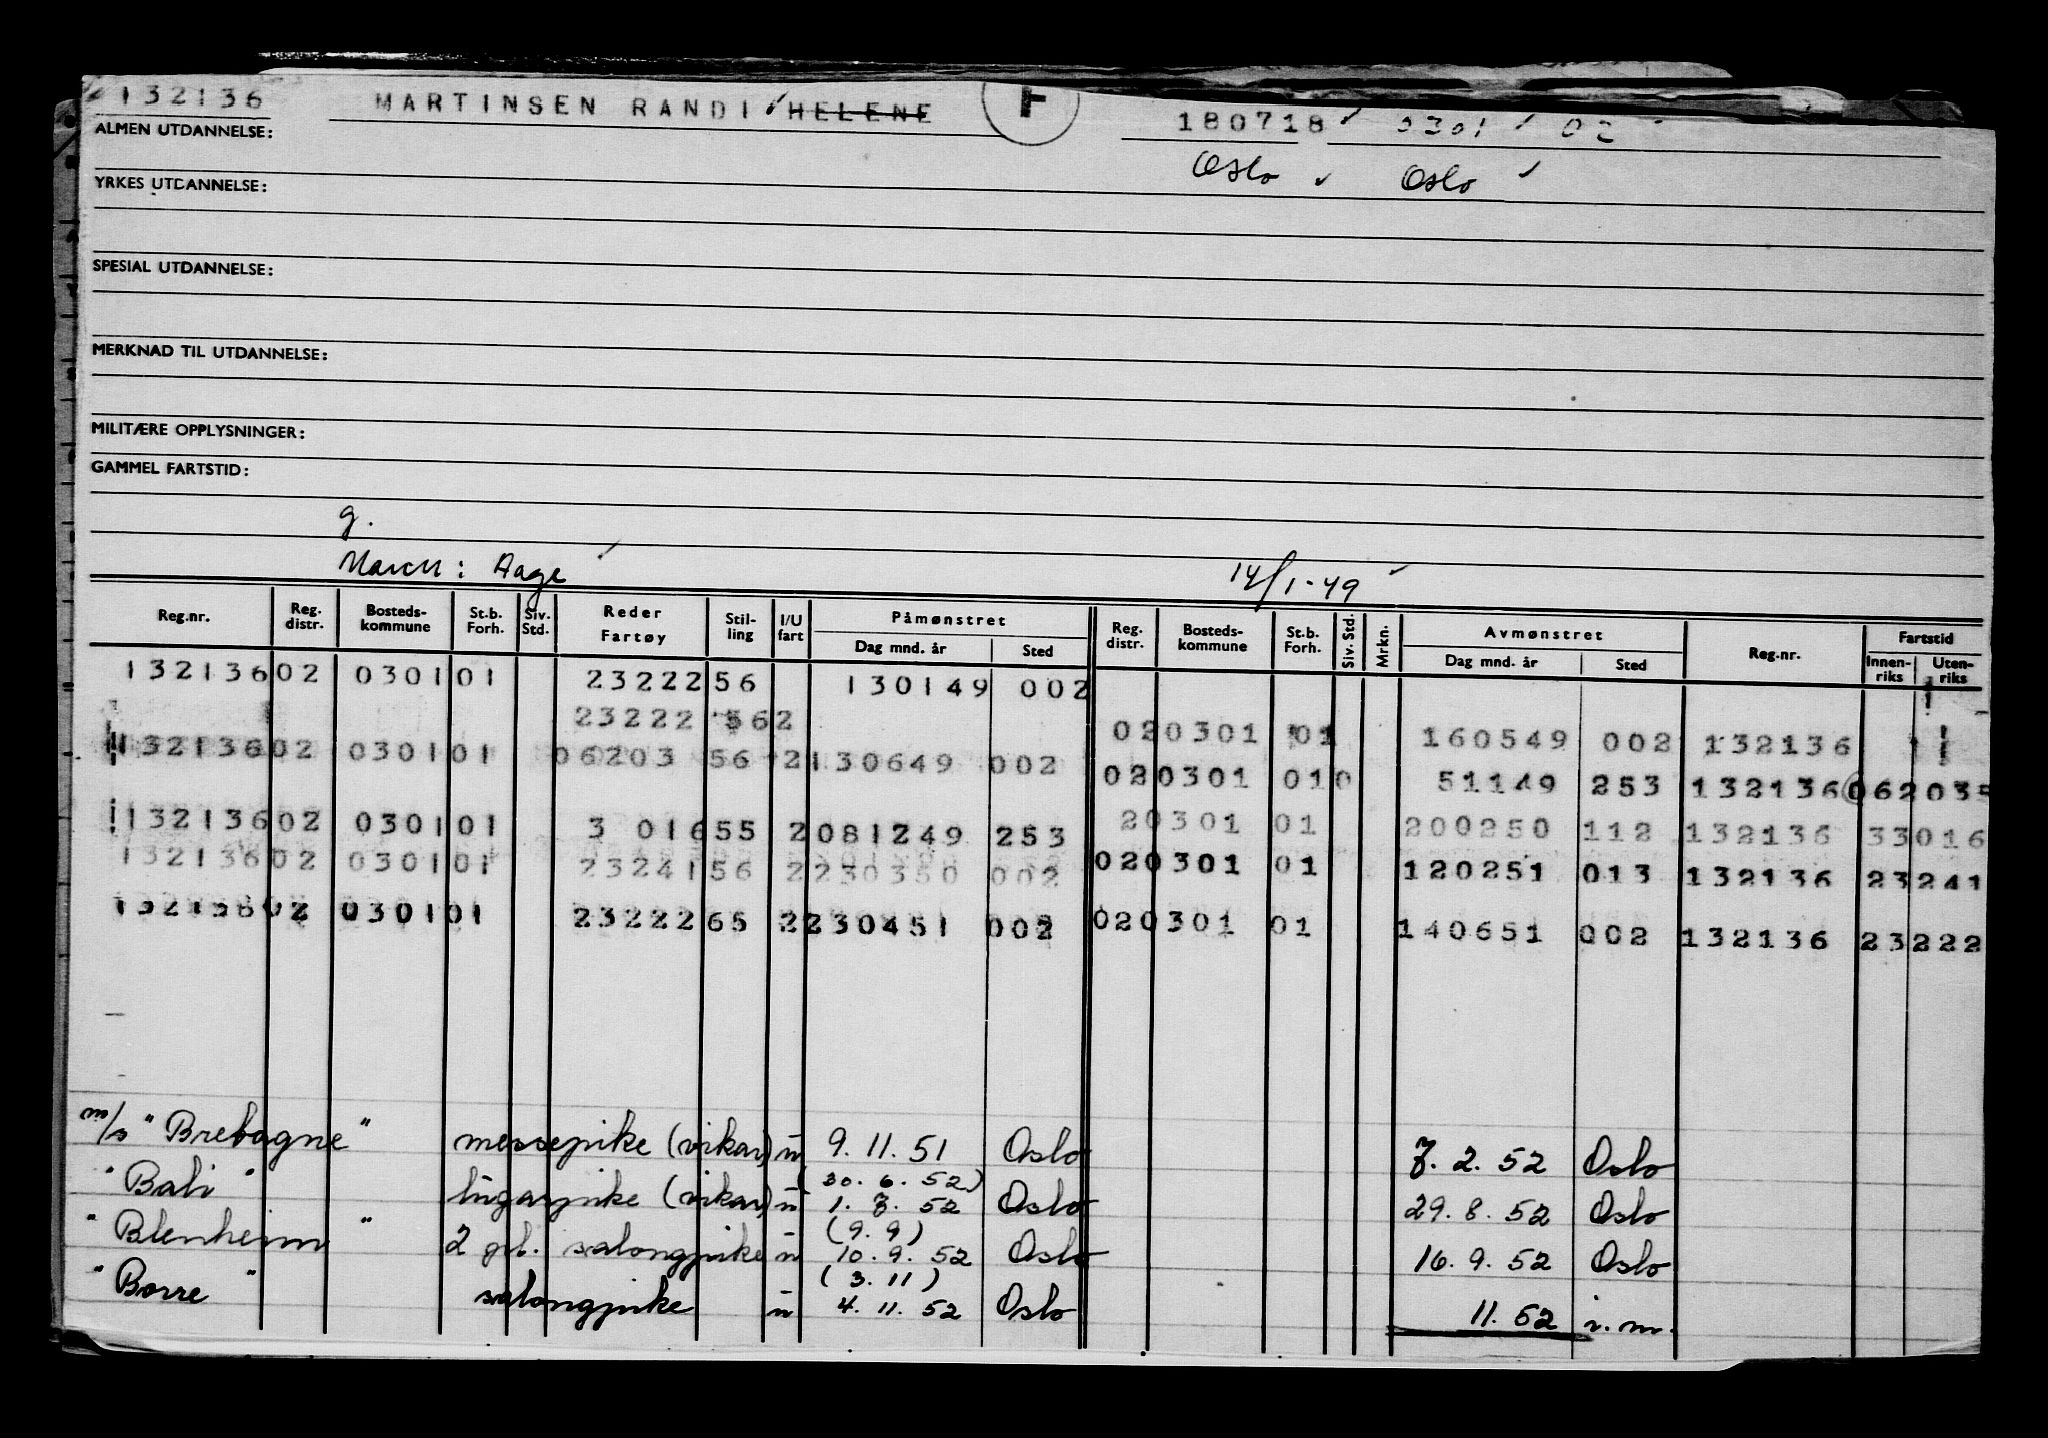 132136 MARTINSEN RANDI HELENE F 180718 0301 02
ALMEN UTDANNELSE:
Oslo Oslo
YRKES UTDANNELSE:
SPESIAL UTDANNELSE:
MERKNAD TIL UTDANNELSE:
MILITÆRE OPPLYSNINGER:
GAMMEL FARTSTID:
g.
: Aage 14/1-49
Reg.nr. Reg. distr. Bosteds- kommune St.b. Forh. Siv. Std. Reder Fartøy Stil- ling I/U fart Påmønstret Dag mnd. år Sted Reg. distr. Bosteds- kommune St.b. Forh. Siv. Std. Mrkn. Avmønstret Dag mnd. år Sted Reg.nr. Fartstid Innen- riks Uten- riks
132136 02 0301 01 23222 56 130149 002
23222 56 2 02 0301 01 160549 002 132136
132136 02 0301 01 06203 56 2 130649 002 02 0301 01 0 51149 253 132136 062035
132136 02 0301 01 3 016 55 2 081249 253 20301 01 200250 112 132136 33016
132136 02 0301 01 23241 56 2 230350 002 02 0301 01 120251 013 132136 23241
132136 02 0301 01 23222 65 2 230451 002 02 0301 01 140651 002 132136 23222
m/s "Bretagne" messepike (vikar) u 9.11.51 Oslo 7.2.52 Oslo
(30.6.52)
"Bali" lugarpike (vikar) u 1.7.52 Oslo 29.8.52 Oslo
(9.9)
"Blenheim" 2 grl. salongpike u 10.9.52 Oslo 16.9.52 Oslo
(3.11)
"Borre" salongpike u 4.11.52 Oslo 11.52 i.m.